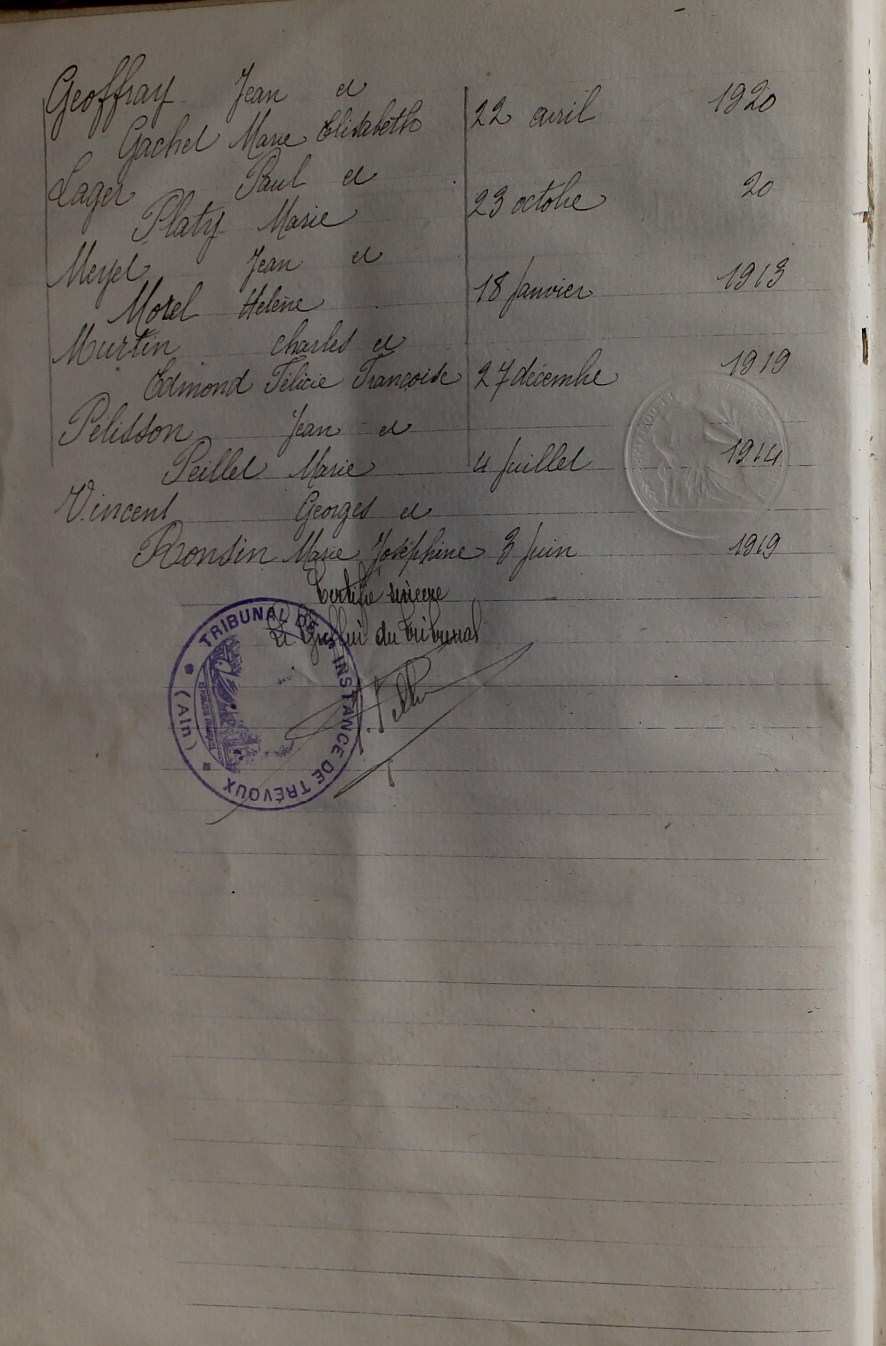 Geoffray Jean et
Gachet Marie Elisabeth 22 avril 1920
Lager Paul et
Platy Marie 23 octobre 20
Jean et
Morel Hélène 18 Janvier 1913
Murtin Charles et
Edmond Félicie Françoise 27 décembre 1919
Pelisson Jean et
Peillet Marie 4 Juillet 1914
Vincent Georges et
Ronsin Marie Joséphine 8 Juin 1919
Certifié sincère
Le Greffier du Tribunal
TRIBUNAL DE 1re INSTANCE DE TRÉVOUX
(Ain)